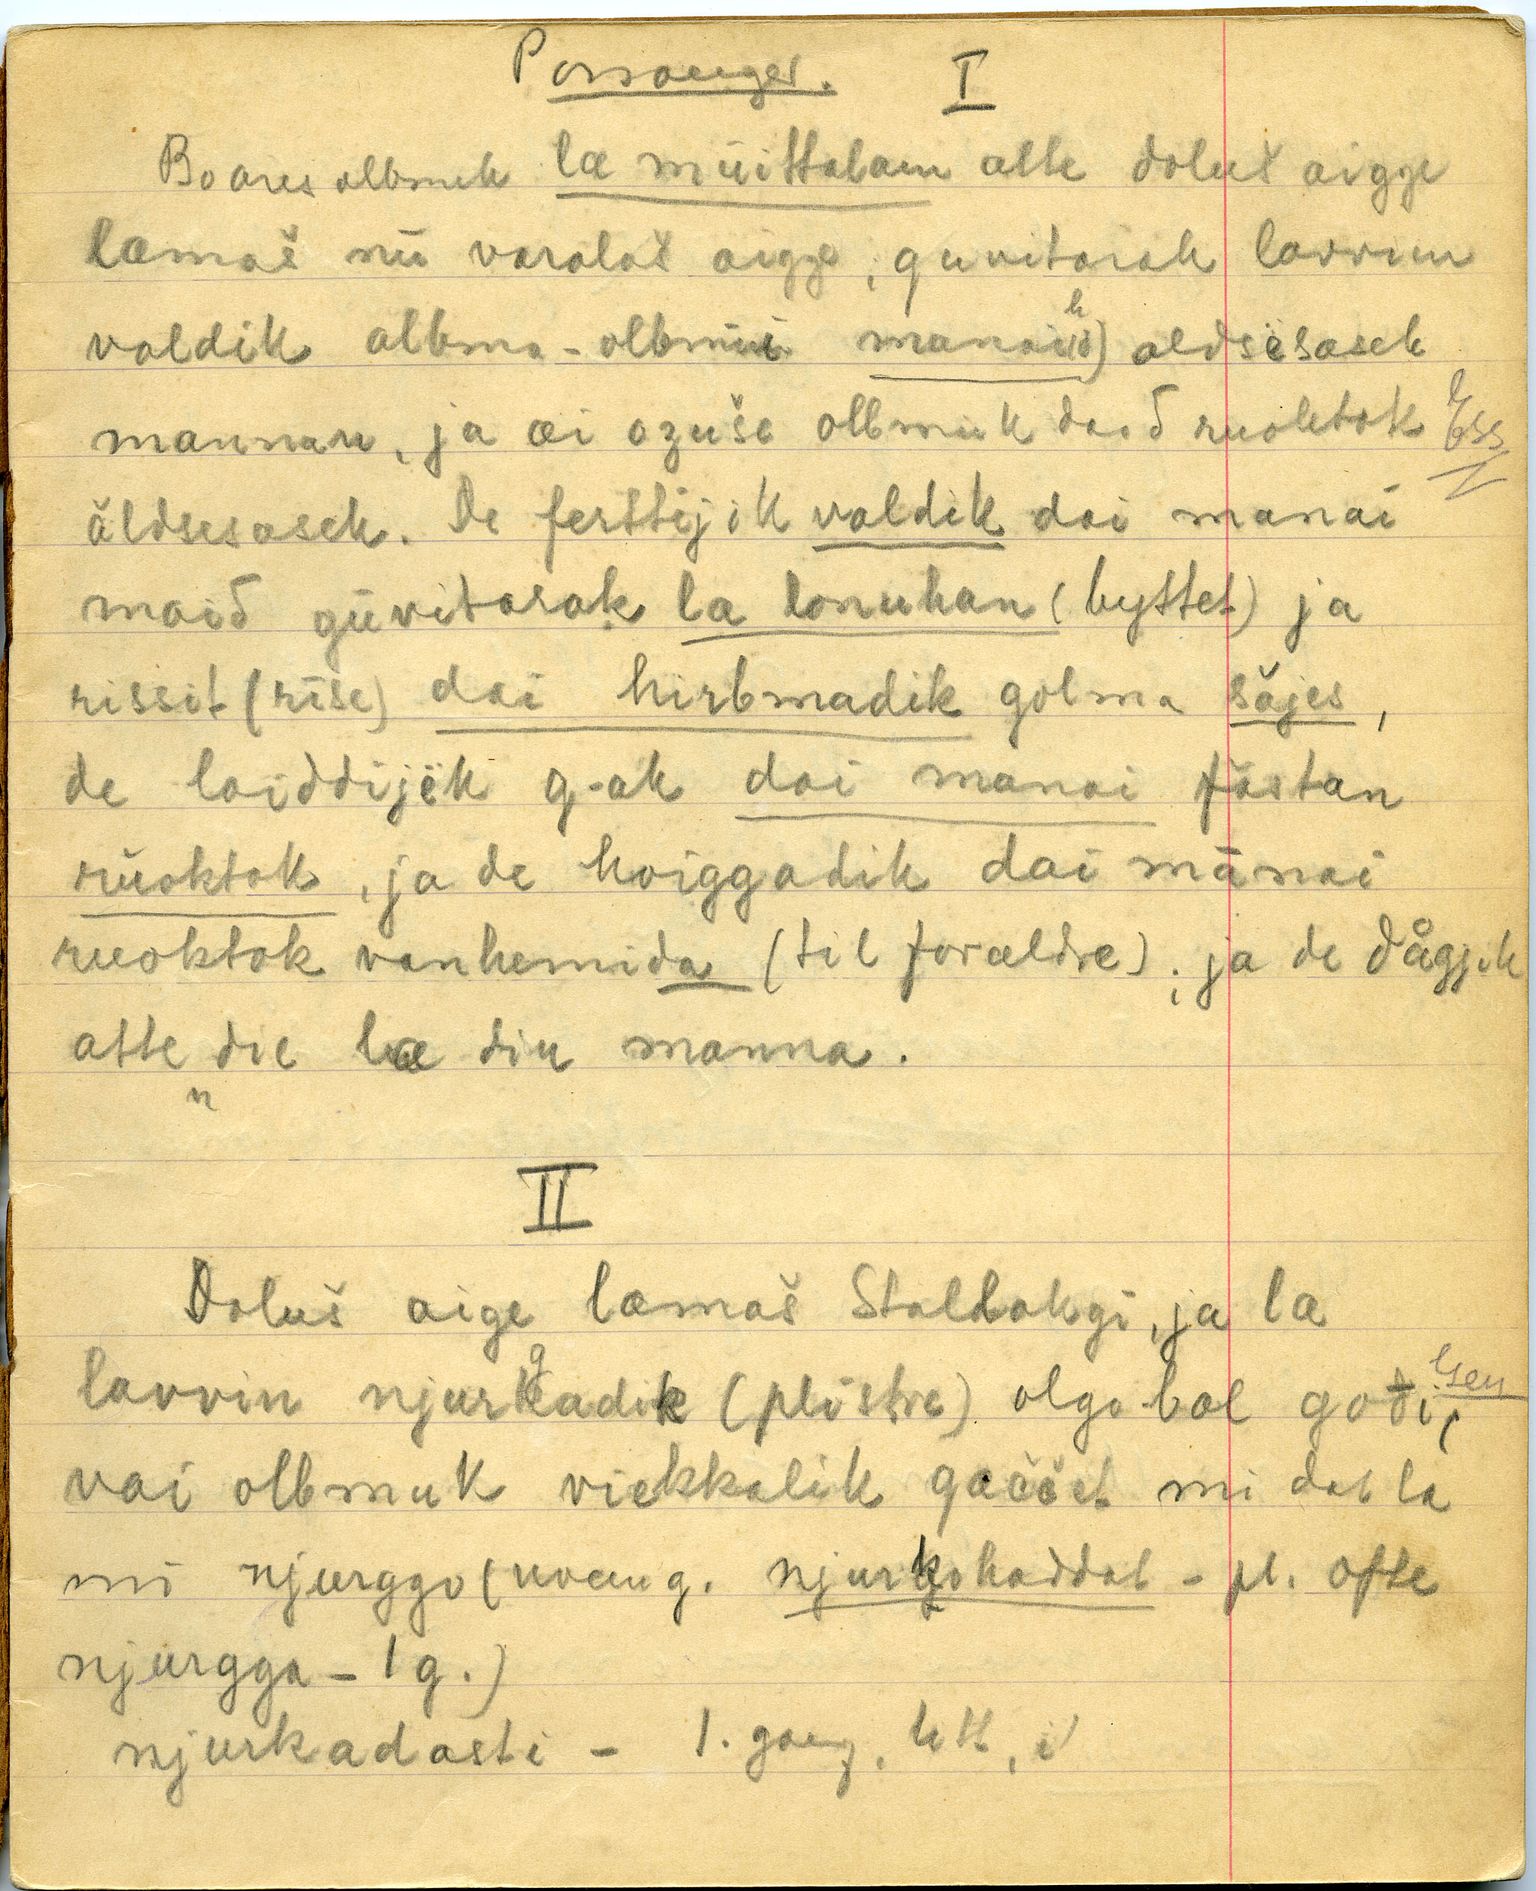 Porsanger. I
Boares olbmuk læ muittalam atte doluš aigge
læmaš nu varalaš aigge, guvitarak lavvim
valdik olbma-olbmui manai aldsesasek
mannan, ja æi ožuše olbmuk daid ruoktok
åldsesasek. De fertijik valdik dai manai
maid guvitarak la lonuhan (byttet) ja
rissit (rise) dai hirbmadik golma såjes,
de laiddijek g-ak dai manai fastan
ruoktok, ja de hoiggadik dai mānai
ruoktok vanhemida (til forældre); ja de dåggjik
atte die læ din manna.
II
Doluš aige læmaš Stallakgi, ja læ
lavvin njurgadik (plistre) olgobæl gođi,
vai olbmuk viekkalik gæččet mi dat la
mi njurggo (uveng. njurkohaddat - pl. ofte
njurgga - 1 g.)
njurkadasti - 1. gang, litt,